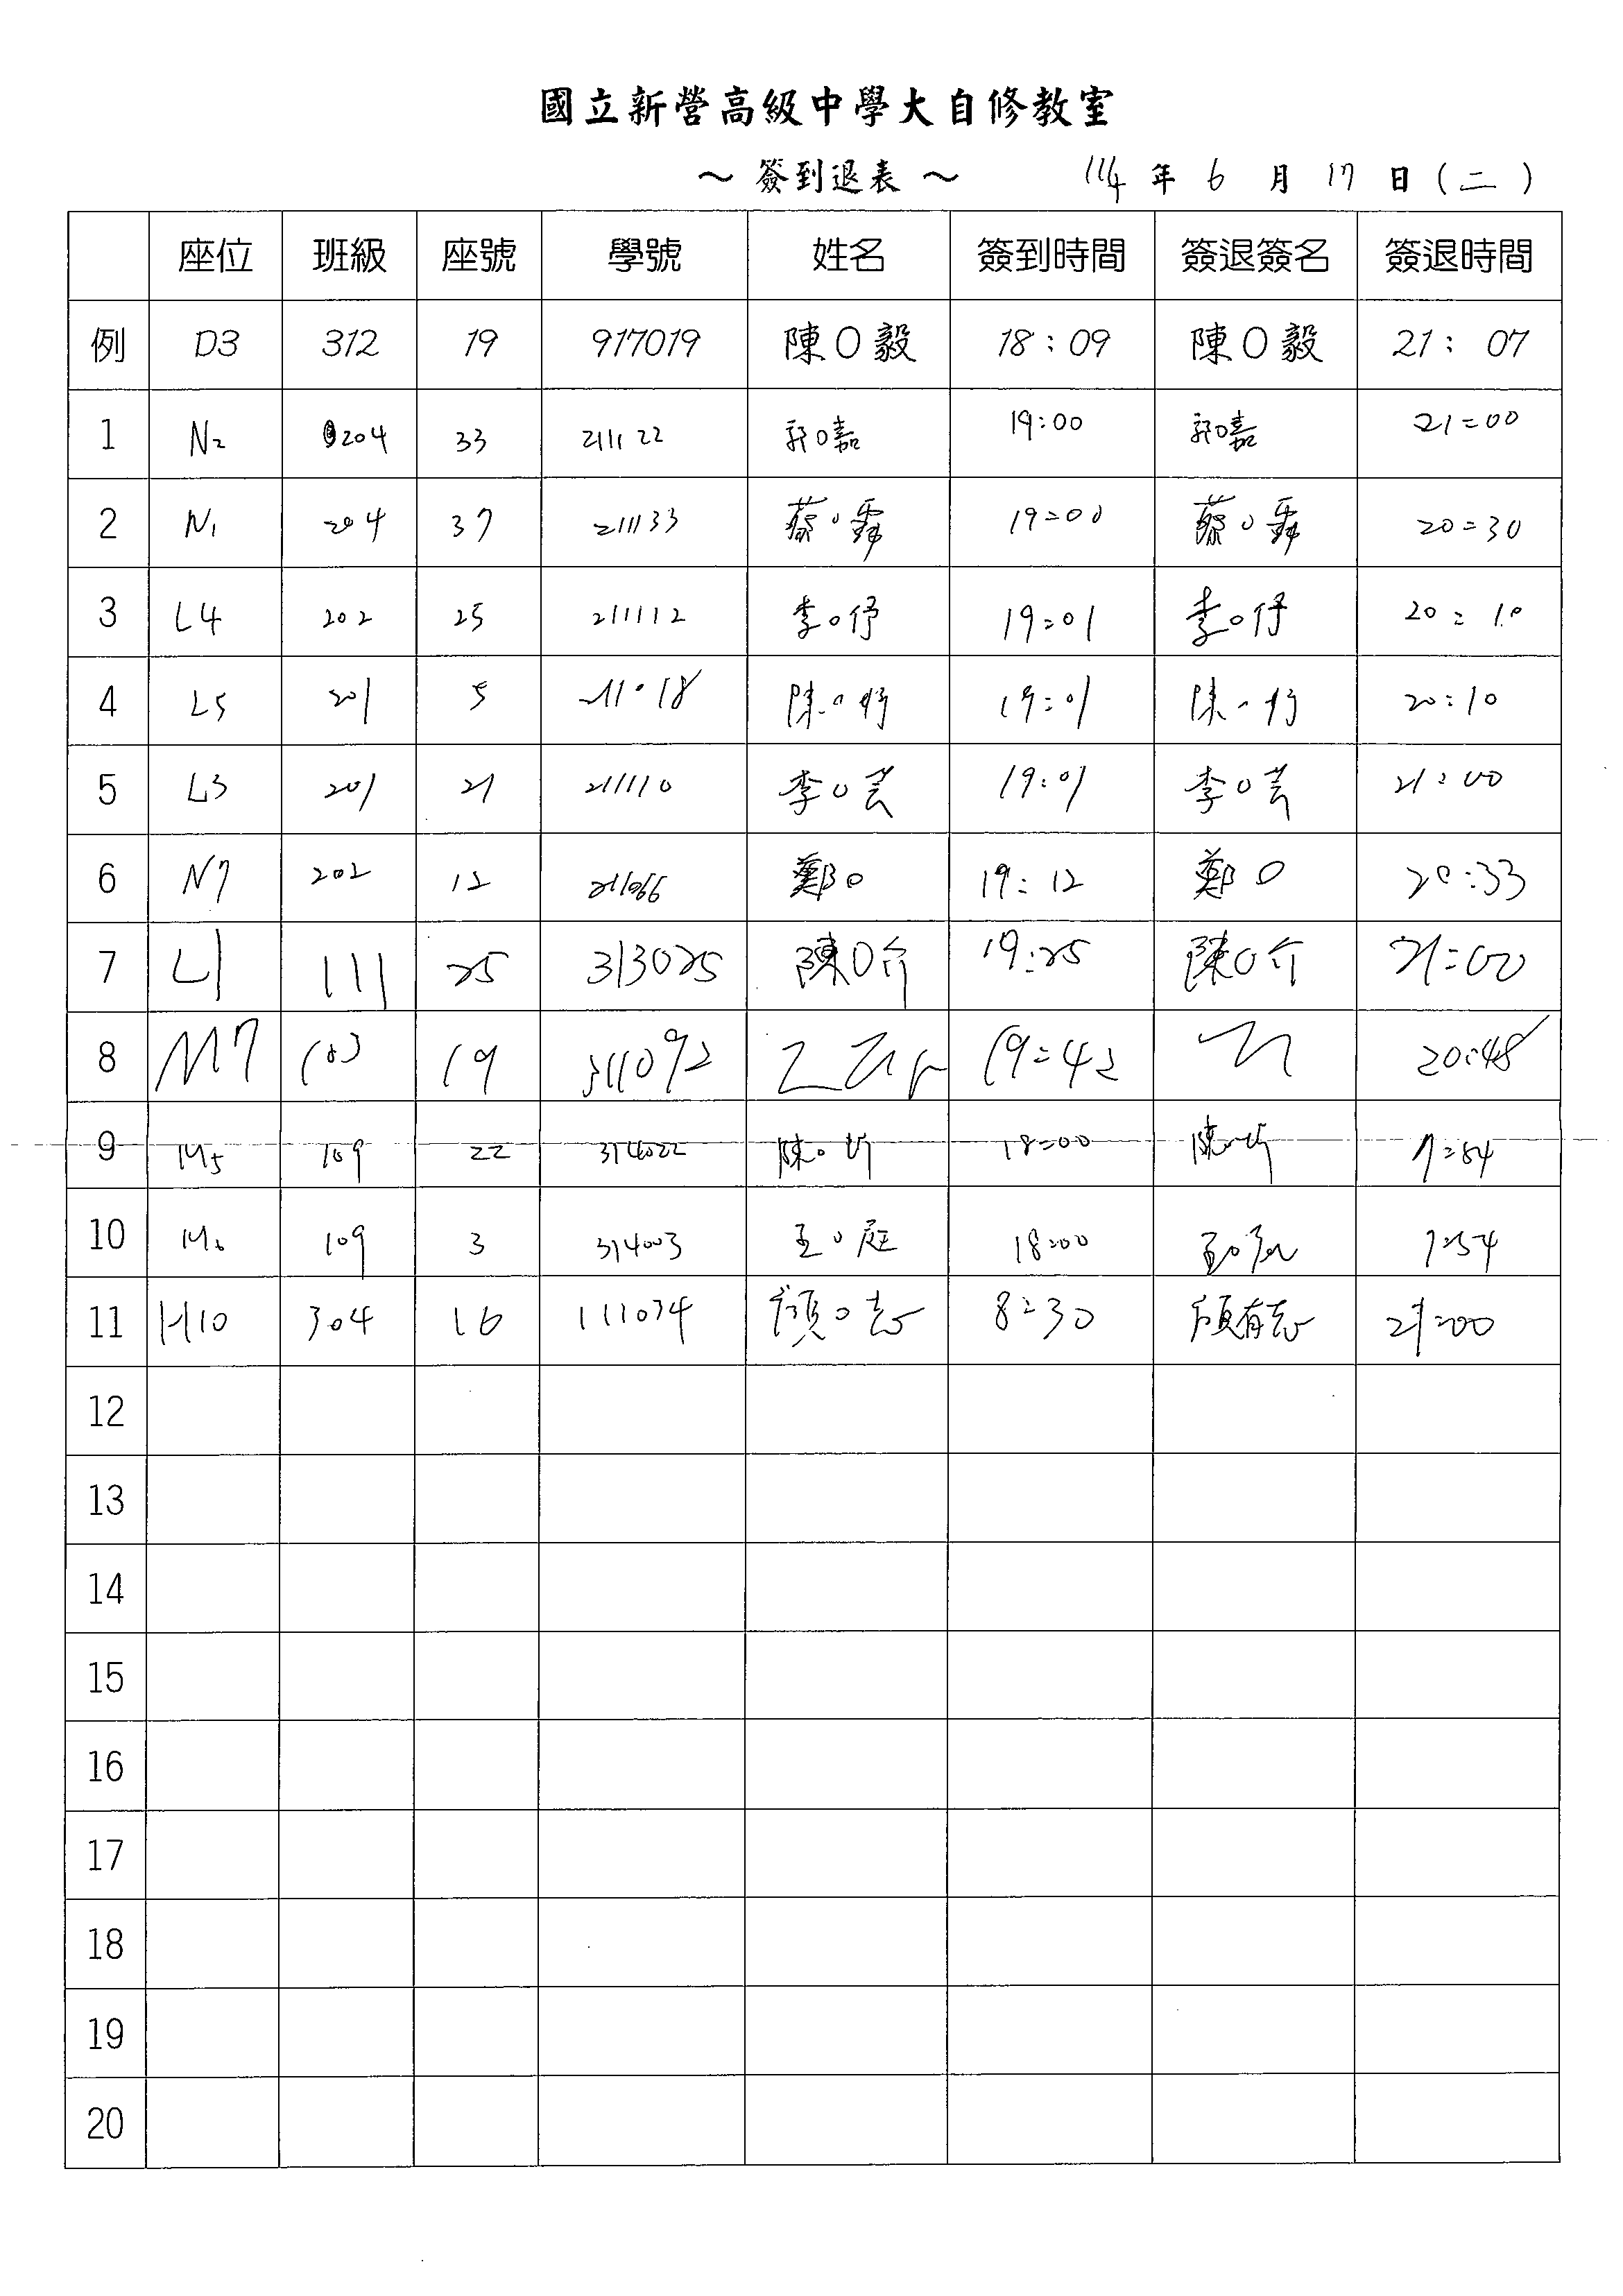 國立新營高級中學大自修教室
～ 簽到退表 ～ 114 年 6 月 17 日 (二)
座位 班級 座號 學號 姓名 簽到時間 簽退簽名 簽退時間
例 D3 312 19 917019 陳O毅 18:09 陳O毅 21:07
1 N2 204 33 211122 郭O嘉 19:00 郭O嘉 21:00
2 N1 204 37 211133 蔡O霈 19:00 蔡O霈 20:30
3 L4 202 25 211112 李O伃 19:01 李O伃 20:10
4 L5 201 5 211018 陳O妤 19:01 陳O妤 20:10
5 L3 201 21 211110 李O芸 19:01 李O芸 21:00
6 N7 202 12 211066 鄭O 19:12 鄭O 20:33
7 L1 111 25 313025 陳O介 19:25 陳O介 21:00
8 M7 103 19 311092 19:42 20:48
9 M5 109 22 314022 陳O 18:00 陳O 7:54
10 M6 109 3 314003 王O庭 18:00 7:54
11 H10 304 16 111034 顏O志 8:30 顏有志 21:00
12
13
14
15
16
17
18
19
20